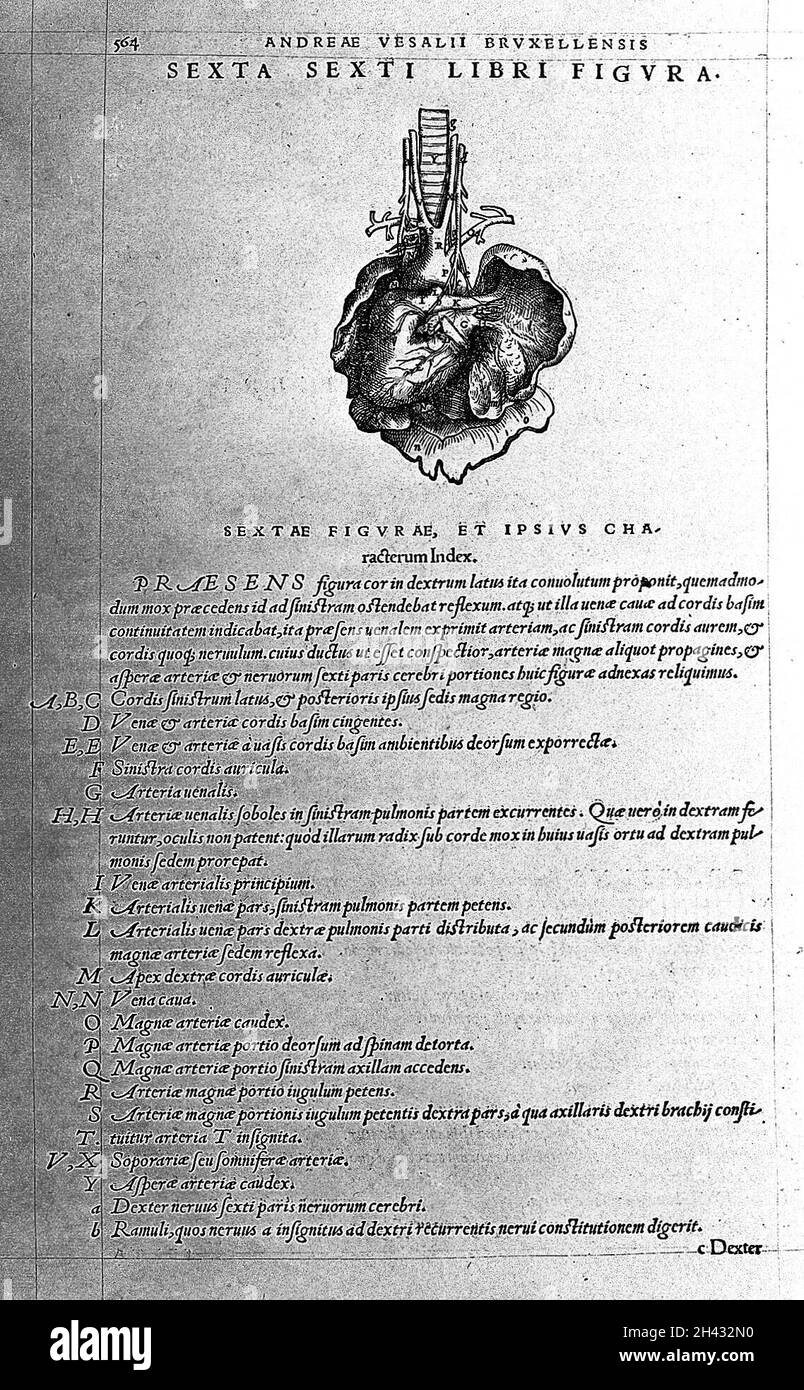 564 ANDREAE VESALII BRVXELLENSIS
SEXTA SEXTI LIBRI FIGVRA.
SEXTAE FIGVRAE, ET IPSIVS CHA-
racterum Index.
PRAESENS figura cor in dextrum latus ita conuolutum proponit, quemadmo-
dum mox præcedens id ad sinistram ostendebat reflexum. atq; ut illa uenæ cauæ ad cordis basim
continuitatem indicabat, ita præsens uenalem exprimit arteriam, ac sinistram cordis aurem, &
cordis quoq; neruulum. cuius ductus ut esset conspectior, arteriæ magnæ aliquot propagines, &
asperæ arteriæ & neruorum sexti paris cerebri portiones huic figuræ adnexas reliquimus.
A,B,C Cordis sinistrum latus, & posterioris ipsius sedis magna regio.
D Venæ & arteriæ cordis basim cingentes.
E,E Venæ & arteriæ à uasis cordis basim ambientibus deorsum exporrectæ.
F Sinistra cordis auricula.
G Arteria uenalis.
H,H Arteriæ uenalis soboles in sinistram pulmonis partem excurrentes. Quæ uerò in dextram fe-
runtur, oculis non patent: quòd illarum radix sub corde mox in huius uasis ortu ad dextram pul-
monis sedem prorepat.
I Venæ arterialis principium.
K Arterialis uenæ pars, sinistram pulmonis partem petens.
L Arterialis uenæ pars dextræ pulmonis parti distributa, ac secundùm posteriorem caudicis
magnæ arteriæ sedem reflexa.
M Apex dextræ cordis auriculæ.
N,N Vena caua.
O Magnæ arteriæ caudex.
P Magnæ arteriæ portio deorsum ad spinam detorta.
Q Magnæ arteriæ portio sinistram axillam accedens.
R Arteriæ magnæ portio iugulum petens.
S Arteriæ magnæ portionis iugulum petentis dextra pars, à qua axillaris dextri brachij consti-
T. tuitur arteria T insignita.
V,X Soporariæ seu somniferæ arteriæ.
Y Asperæ arteriæ caudex.
a Dexter neruus sexti paris neruorum cerebri.
b Ramuli, quos neruus a insignitus ad dextri recurrentis nerui constitutionem digerit.
c Dexter
alamy
Image ID: 2H432N0
www.alamy.com